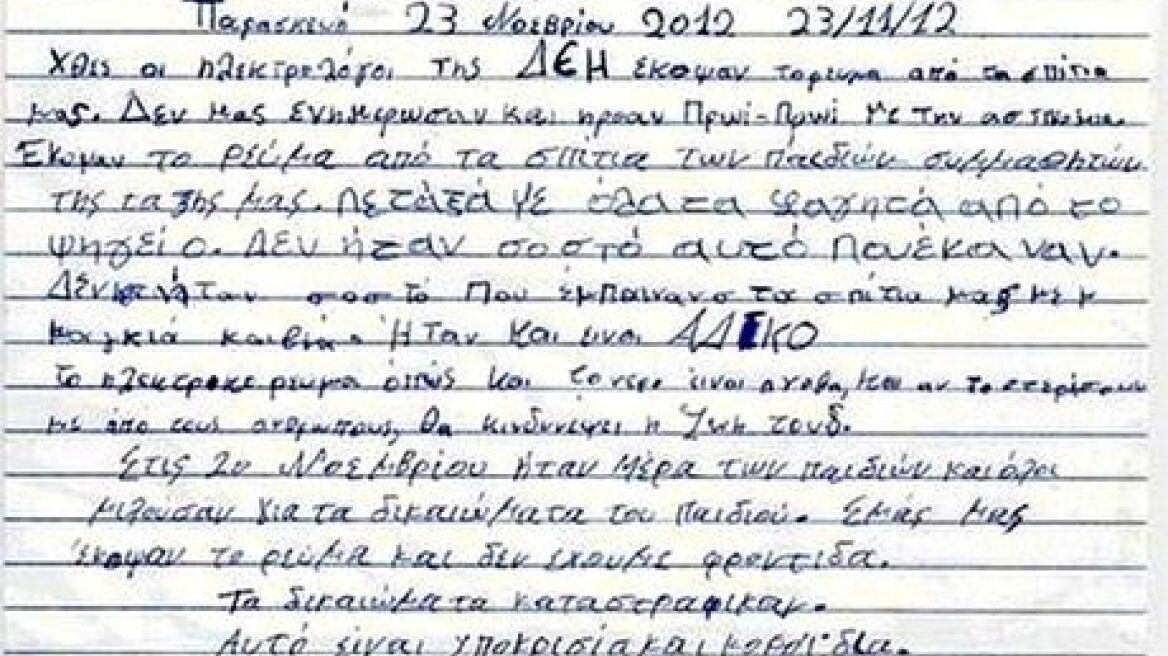 Παρασκευή 23 Νοεβρίου 2012 23/11/12
Χθες οι ηλεκτρολόγοι της ΔΕΗ έκοψαν το ρευμα από τα σπίτια
μας. Δεν μας ενημερωσαν και ηρθαν Πρωί-Πρωί με την αστυνομια.
Έκοψαν το ρεύμα από τα σπίτια των παιδιών συμμαθητών
της ταξης μας. Πετάξαμε όλα τα φαγητά από το
ψηγείο. Δεν ήταν σοστό αυτό που έκαναν.
Δεν ήταν σοστό που έμπαιναν στα σπίτια μας με
μαγκιά και βία. Ήταν και ειναι ΑΔΙΚΟ
Το ρεωμα όπως και το νερο είναι αγαθα, και αν το στερίσουμε
από τους ανθρωπους, θα κινδυνέψει η ζωη τους.
Στις 20 Νοεμβρίου ήταν μέρα των παιδιών και όλοι
μιλούσαν για τα δικαιώματα του παιδιού. Εμάς μας
έκοψαν το ρεύμα και δεν έχουμε φροντιδα.
Τα δικαιώματα καταστραφικαν.
Αυτό είναι υποκρισία και κοροϊδία.